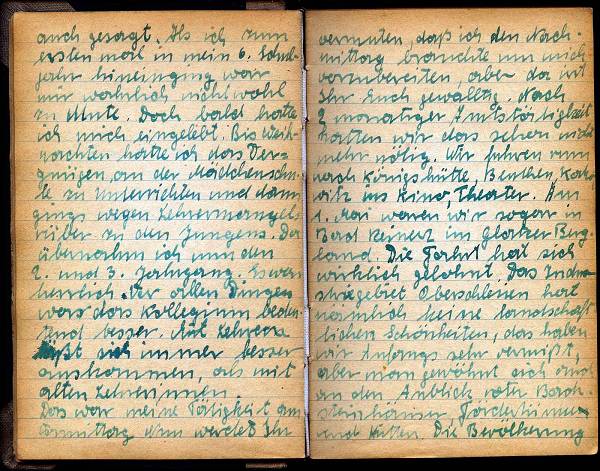 auch gesagt. Als ich zum
ersten mal in mein 6. Schul-
jahr hineinging war
mir wahrlich nicht wohl
zu Mute. Doch bald hatte
ich mich eingelebt. Bis Weih-
nachten hatte ich das Ver-
gnügen, an der Mädchenschu-
le zu Unterrichten und dann
gings wegen Lehrermangels
rüber zu den Jungens. Da
übernahm ich nun den
2. und 3. Jahrgang. Es war
herrlich. Vor allen Dingen
war das Kollegium bedeu-
tend besser. Mit Lehrern
läßt sich immer besser
auskommen, als mit
alten Lehrerinnen.
Das war meine Tätigkeit am
Vormittag. Nun werdet Ihr
vermuten, daß ich den Nach-
mittag brauchte um mich
vorzubereiten, aber da irrt
Ihr Euch gewaltig. Nach
2 monatiger Amtstätigkeit
hatten wir das schon nicht
mehr nötig. Wir fuhren nun
nach Königshütte, Beuthen, Katto-
witz ins Kino, Theater. Am
1. Mai waren wir sogar in
Bad Reinerz im Glatzer Berg-
land. Die Fahrt hat sich
wirklich gelohnt. Das Indu-
striegebiet Oberschlesien hat
nämlich keine landschaft-
lichen Schönheiten, das haben
wir Anfangs sehr vermißt,
aber man gewöhnt sich auch
an den Anblick roter Back-
steinhäuser, Fördertürme
und Hütten. Die Bevölkerung